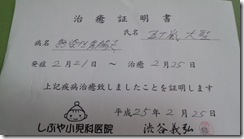 治癒証明書
氏名
病名
発症 2月21日 〜 治癒 2月25日
上記疾病治癒致しましたことを証明します
平成25年2月25日
しぶや小児科医院 渋谷義弘